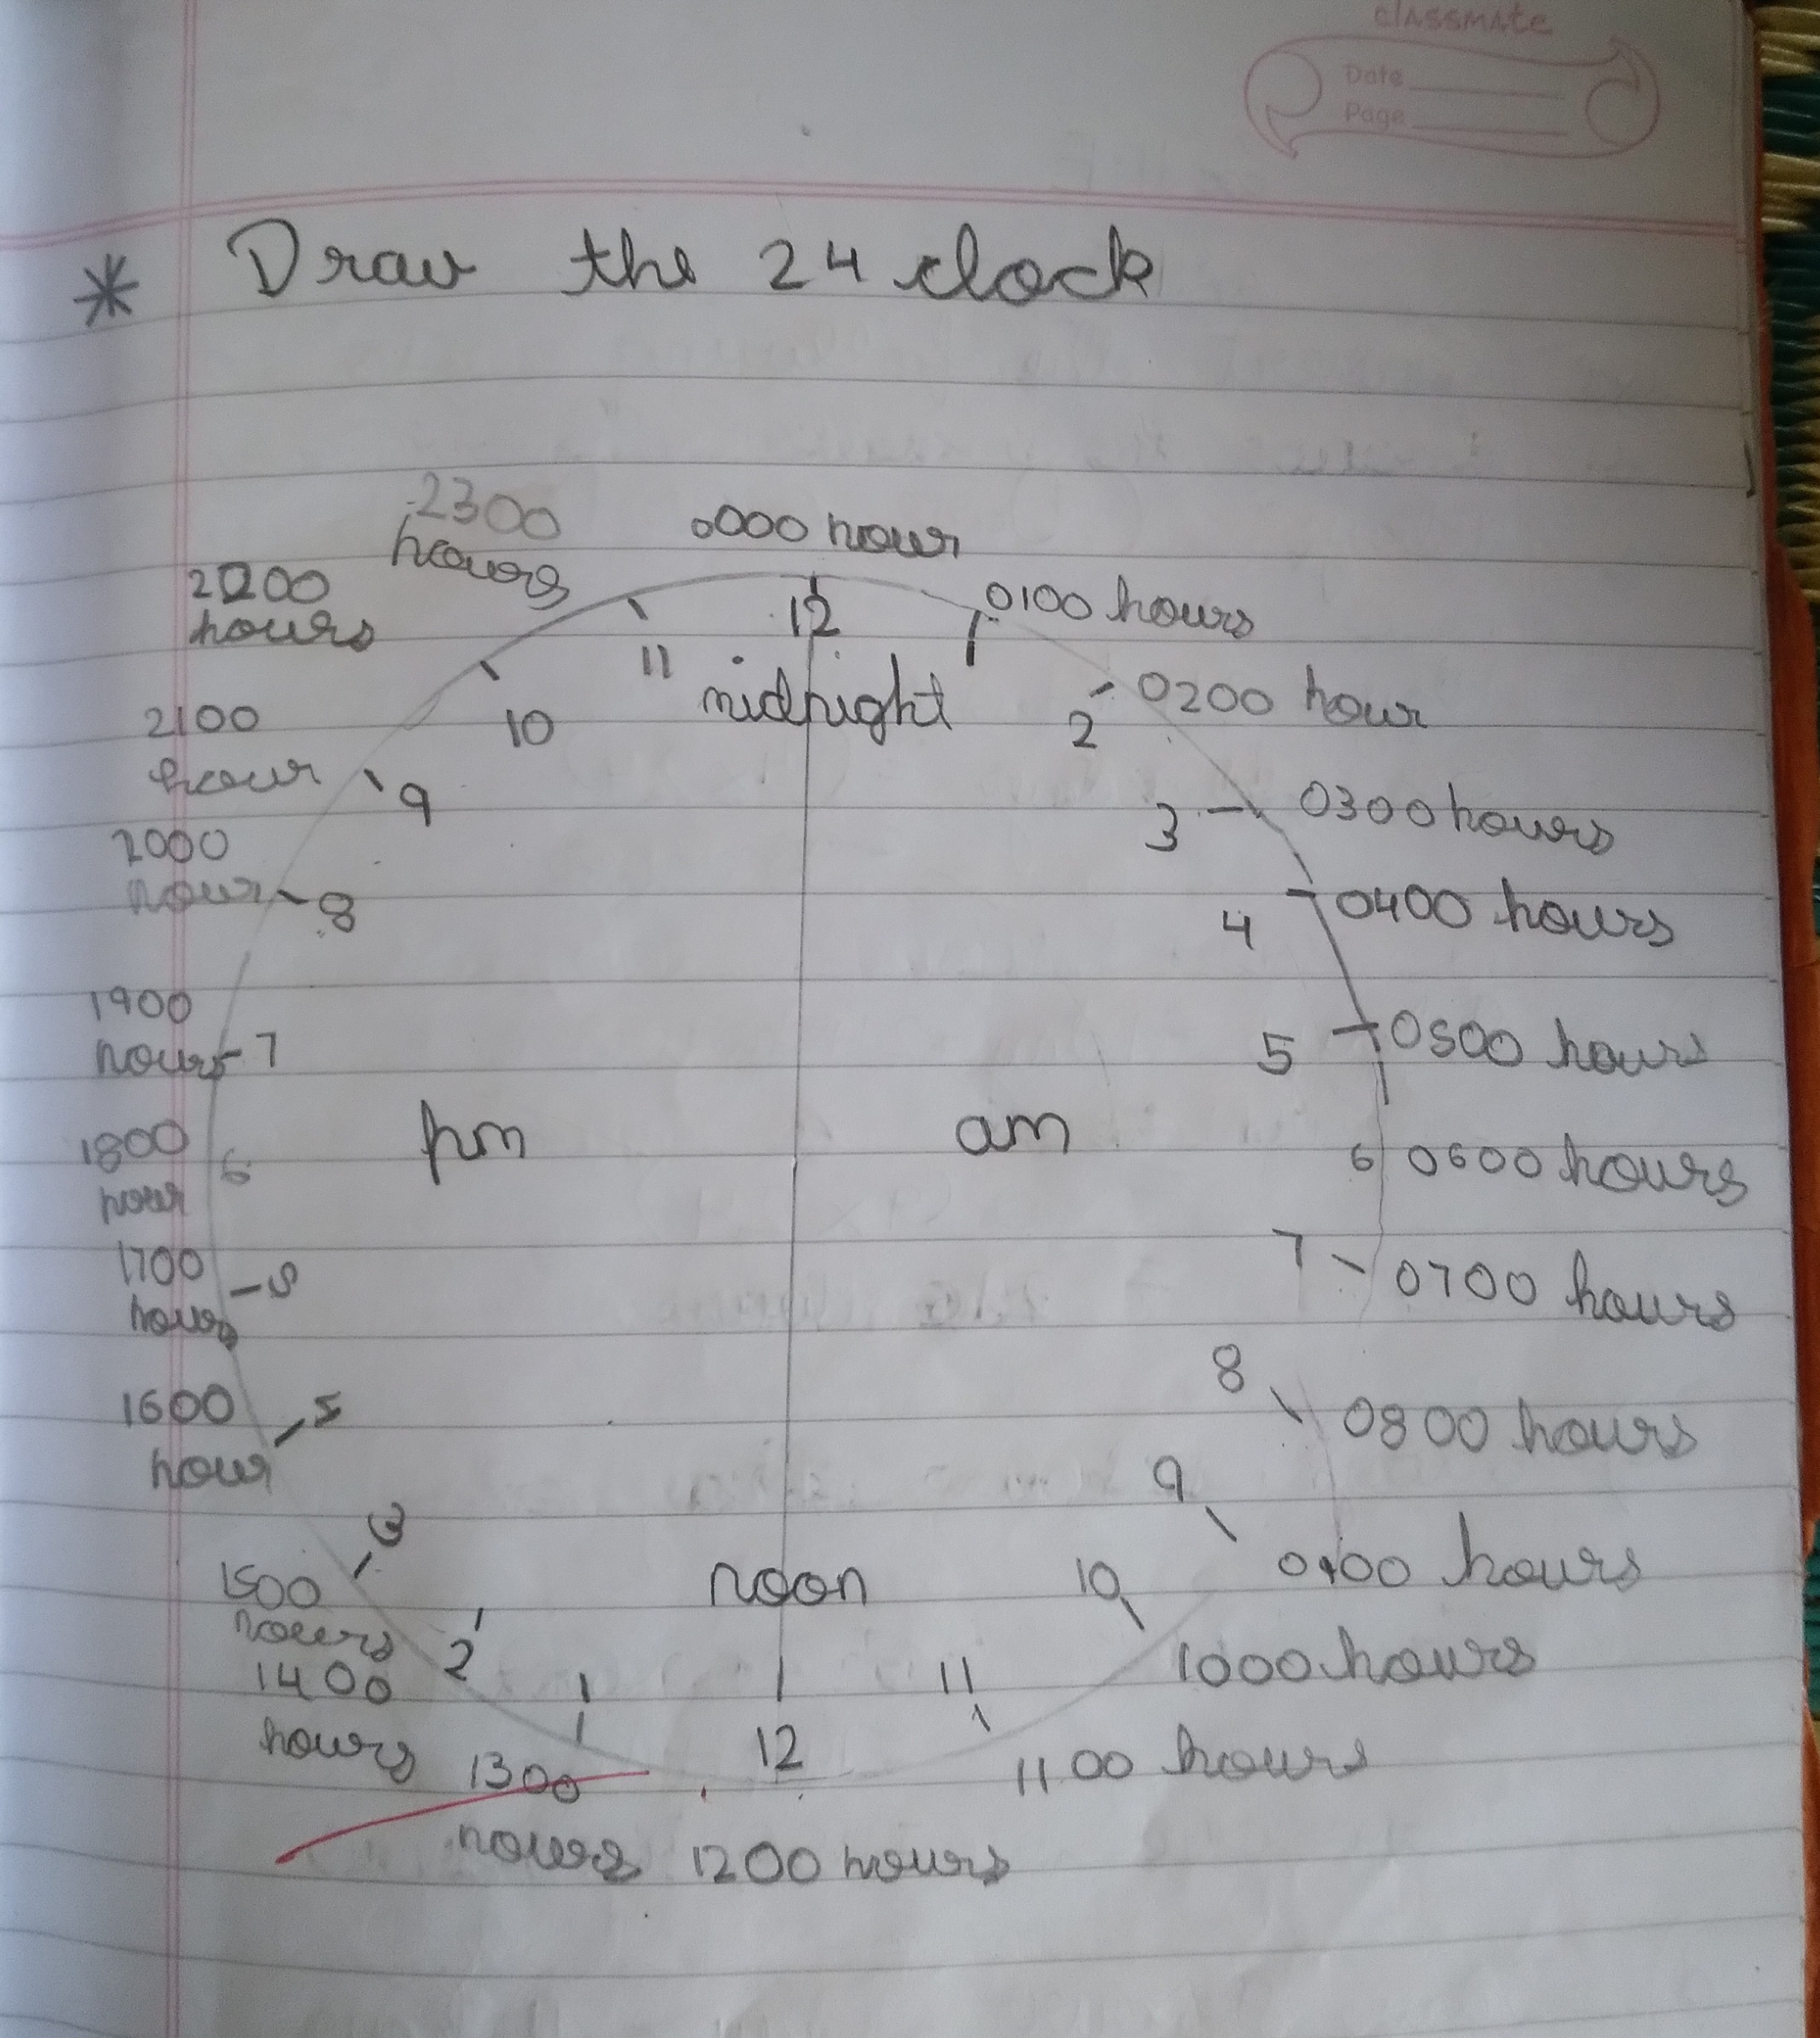 classmate
Date
Page
* Draw the 24 clock
2300
hours
0000 hour
2200
hours
12
0100 hours
11
midnight
2
0200 hour
2100
hour
10
9
3
0300 hours
2000
hour
8
4
0400 hours
1900
hours
7
5
0500 hours
pm
am
1800
hour
6
6
0600 hours
1700
hours
5
7
0700 hours
1600
hour
8
0800 hours
3
9
1500
hours
noon
10
hours
2
1400
hours
1
12
11
1000 hours
1300
hours
1100 hours
1200 hours